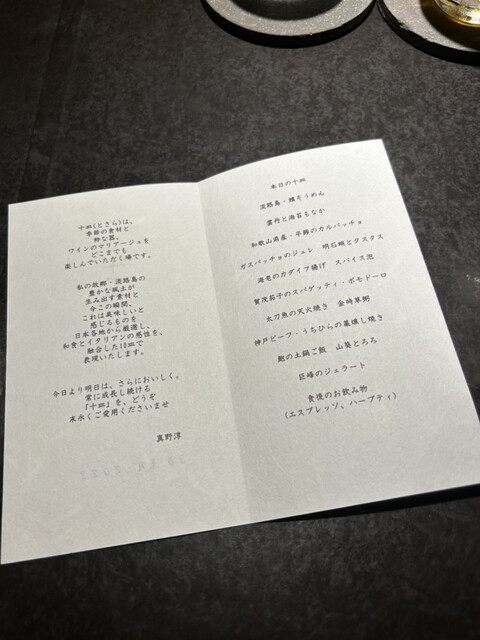 十皿(とさら)は、
季節の食材と
粋な器、
ワインのマリアージュを
どこまでも
楽しんでいただく場です。
私の故郷・淡路島の
豊かな風土が
生み出す素材と
今この瞬間、
これは美味しいと
感じるものを
日本各地から厳選し、
和食とイタリアンの感性を、
融合した10皿で
表現いたします。
今日より明日は、さらにおいしく。
常に成長し続ける
『十皿』を、どうぞ
末永くご愛用くださいませ
真野淳
本日の十皿
淡路島・鱧そうめん
雲丹と海苔もなか
和歌山県産・平鯵のカルパッチョ
ガスパッチョのジュレ 明石蛸とクスクス
海老のカダイフ揚げ スパイス泡
賀茂茄子のスパゲッティ・ポモドーロ
太刀魚の天火焼き 金時草粥
神戸ビーフ・うちひらの藁燻し焼き
鮑の土鍋ご飯 山葵とろろ
巨峰のジェラート
食後のお飲み物
(エスプレッソ、ハーブティ)